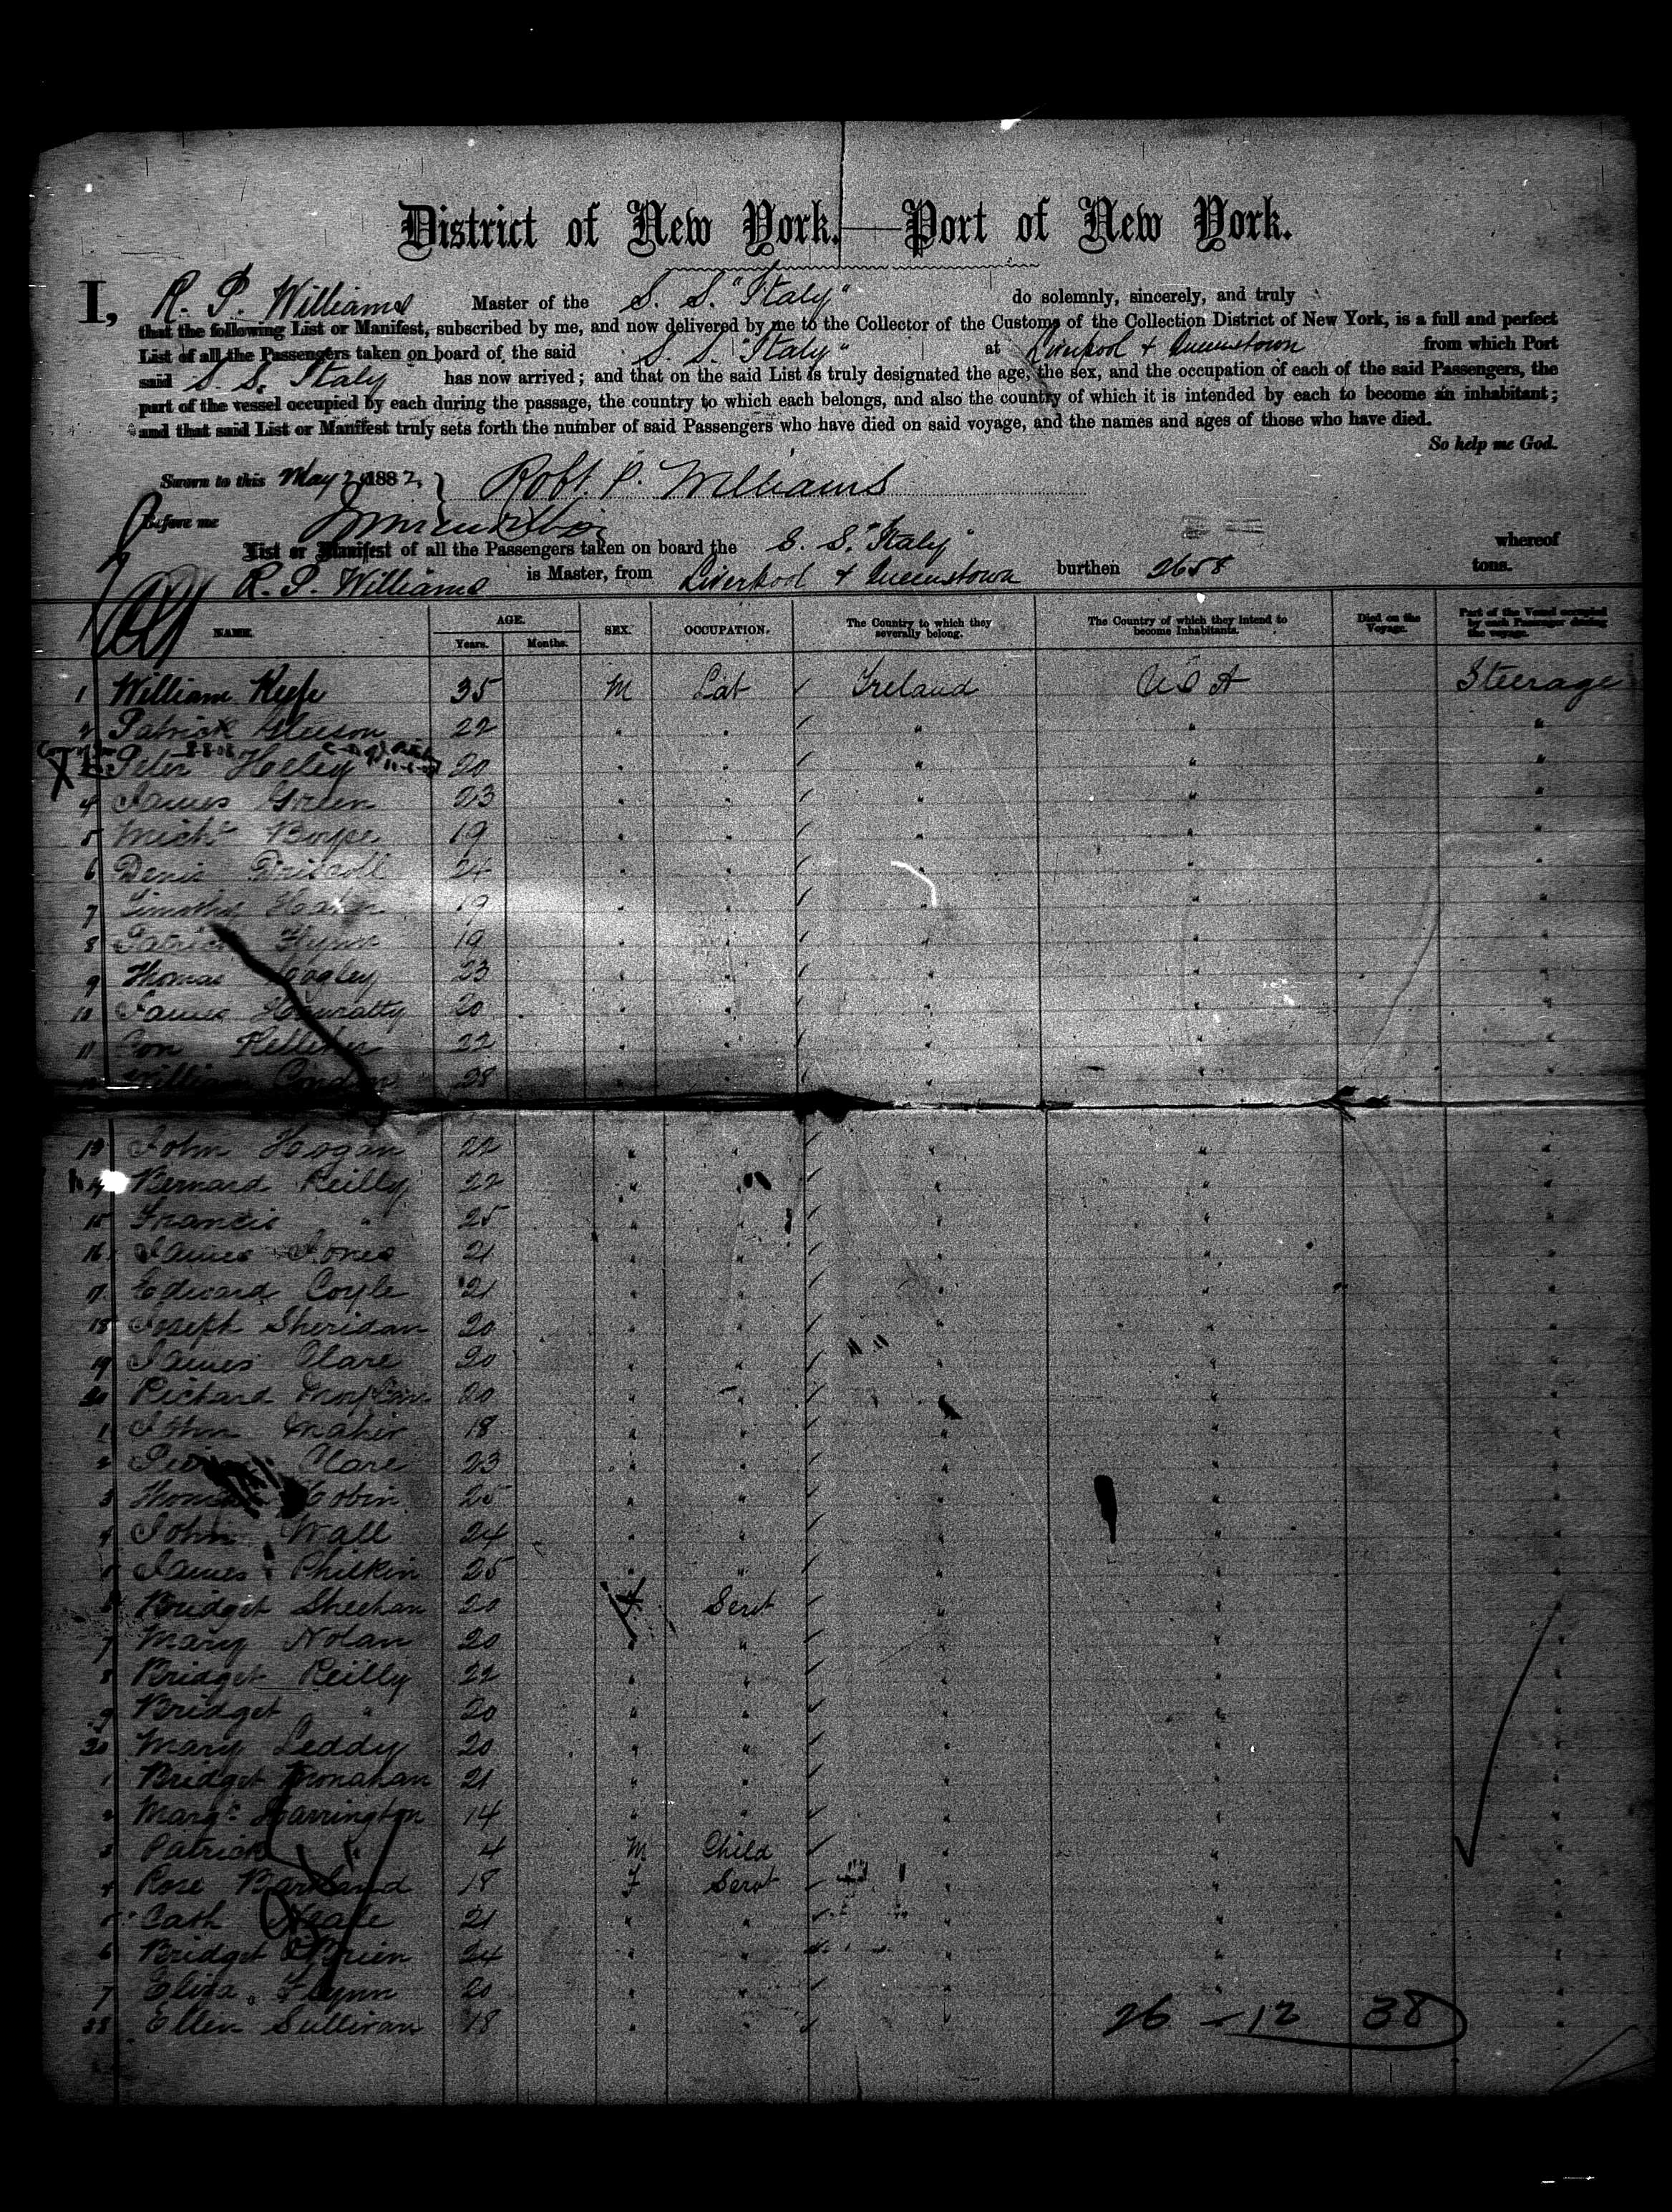 District of New York.—Port of New York.
I, R. P. Williams Master of the S. S. "Italy" do solemnly, sincerely, and truly
that the following List or Manifest, subscribed by me, and now delivered by me to the Collector of the Customs of the Collection District of New York, is a full and perfect
List of all the Passengers taken on board of the said S. S. "Italy" at Liverpool & Queenstown from which Port
said S. S. Italy has now arrived; and that on the said List is truly designated the age, the sex, and the occupation of each of the said Passengers, the
part of the vessel occupied by each during the passage, the country to which each belongs, and also the country of which it is intended by each to become an inhabitant;
and that said List or Manifest truly sets forth the number of said Passengers who have died on said voyage, and the names and ages of those who have died.
So help me God.
Sworn to this May 1882, } Robt. P. Williams
Before me
List or Manifest of all the Passengers taken on board the S. S. "Italy" whereof
R. P. Williams is Master, from Liverpool & Queenstown burthen 2658 tons.
NAME. AGE. Years. Months. SEX. OCCUPATION. The Country to which they severally belong. The Country of which they intend to become Inhabitants. Died on the Voyage. Part of the Vessel occupied by each Passenger during the voyage.
1 William Keefe 35 M Lab ✓ Ireland U S A Steerage
2 Patrick Gleeson 22 " " ✓ " " "
3 Peter Heley 20 " " ✓ " " "
4 James Green 23 " " ✓ " " "
5 Michl Boyce 19 " " ✓ " " "
6 Denis Driscoll 24 " " ✓ " " "
7 Timothy 19 " " ✓ " " "
8 Patrick Flynn 19 " " ✓ " " "
9 Thomas 23 " " ✓ " " "
10 James 20 " " ✓ " " "
11 Con Kelliher 22 " " ✓ " " "
12 William Condon 28 " " ✓ " " "
13 John Hogan 22 " " ✓ " " "
14 Bernard Reilly 22 " " ✓ " " "
15 Francis " 25 " " ✓ " " "
16 James Jones 21 " " ✓ " " "
17 Edward Coyle 21 " " ✓ " " "
18 Joseph Sheridan 20 " " ✓ " " "
19 James Clare 20 " " ✓ " " "
20 Richard 20 " " ✓ " " "
1 John Maher 18 " " ✓ " " "
2 Clare 23 " " ✓ " " "
3 Thomas 25 " " ✓ " " "
4 John Wall 24 " " ✓ " " "
5 James Philkin 25 " " ✓ " " "
6 Bridget Sheehan 20 F Servt ✓ " " "
7 Mary Nolan 20 " " ✓ " " "
8 Bridget Reilly 22 " " ✓ " " "
9 Bridget " 20 " " ✓ " " "
30 Mary Leddy 20 " " ✓ " " "
1 Bridget Monahan 21 " " ✓ " " "
2 Margt Harrington 14 " " ✓ " " "
3 Patrick " 4 M Child ✓ " " "
4 Rose 18 F Servt ✓ " " "
5 Cath 21 " " ✓ " " "
6 Bridget O'Brien 24 " " ✓ " " "
7 Eliza Flynn 20 " " ✓ " " "
38 Ellen Sullivan 18 " " ✓ " "
26 – 12 38